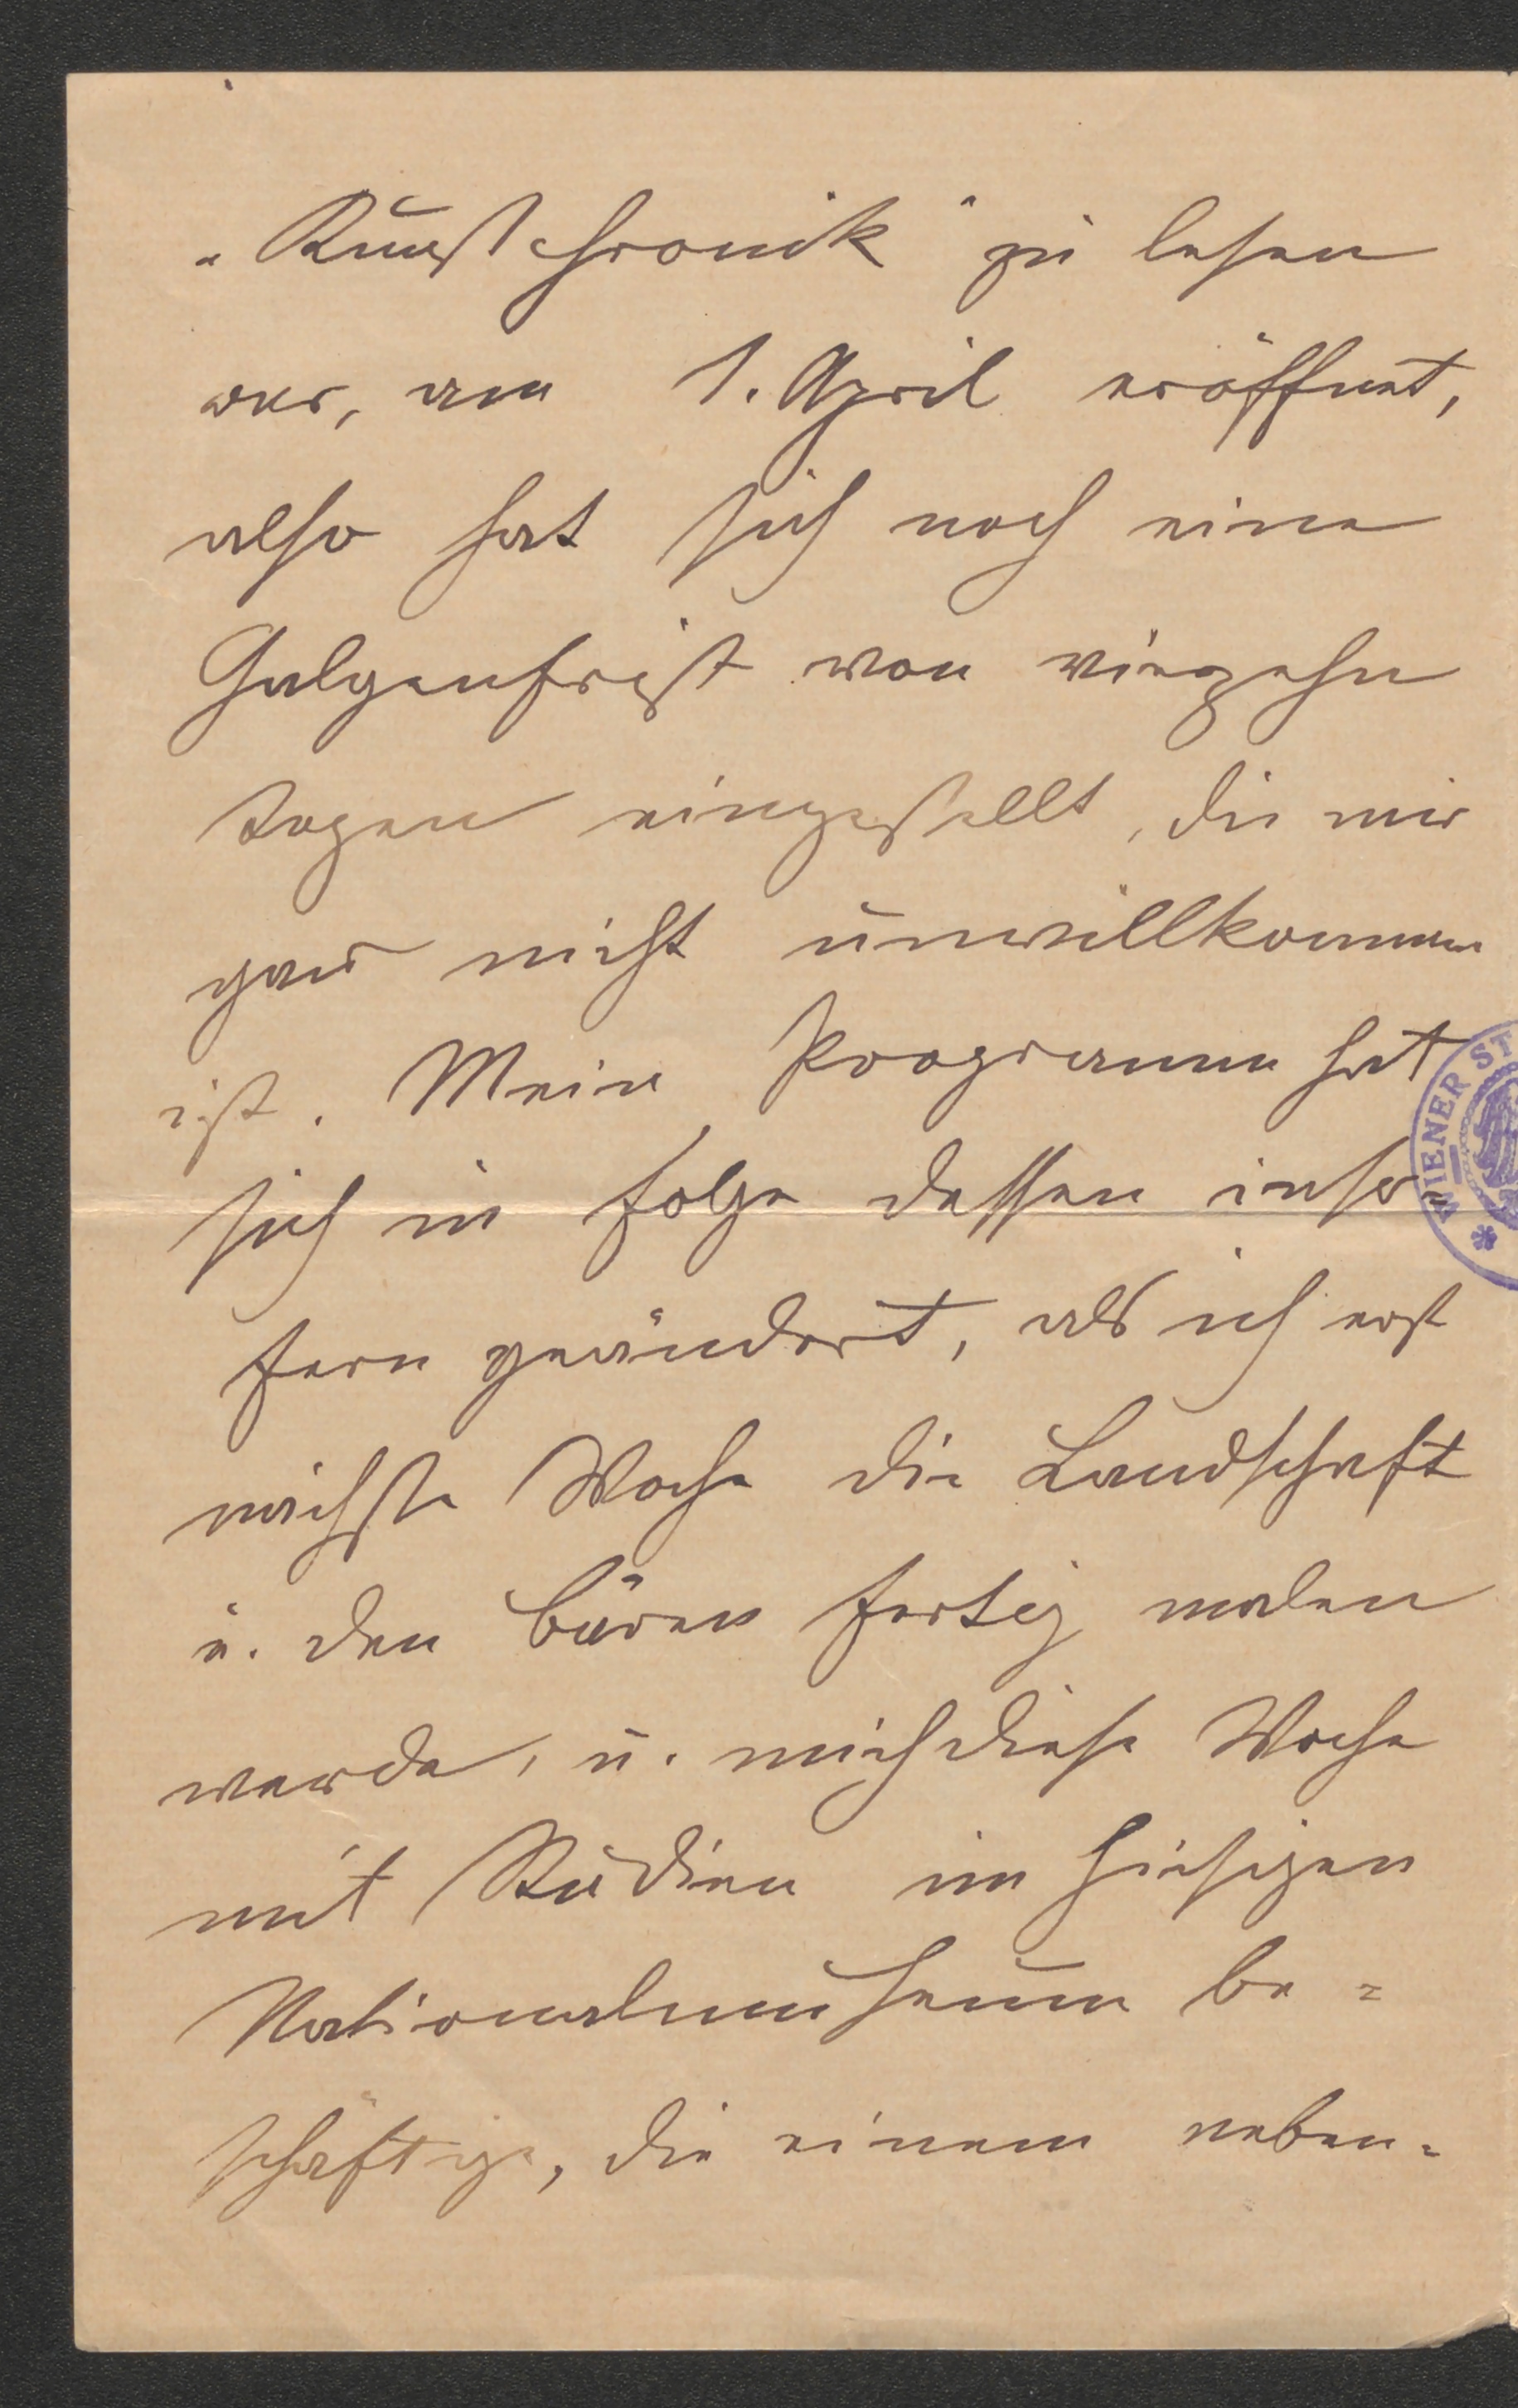 „Kunstchronik" zu lesen
war, am 1. April eröffnet,
also hat sich noch eine
Galgenfrist von vierzehn
Tagen eingestellt, die mir
gar nicht unwillkommen
ist. Mein Programm hat
sich in Folge dessen inso=
fern geändert, als ich erst
nächste Woche die Landschaft
u. den Bären fertig malen
werde, u. mich diese Woche
mit Studien im hiesigen
Nationalmuseum be=
schäftige, die einem neben=
WIENER ST